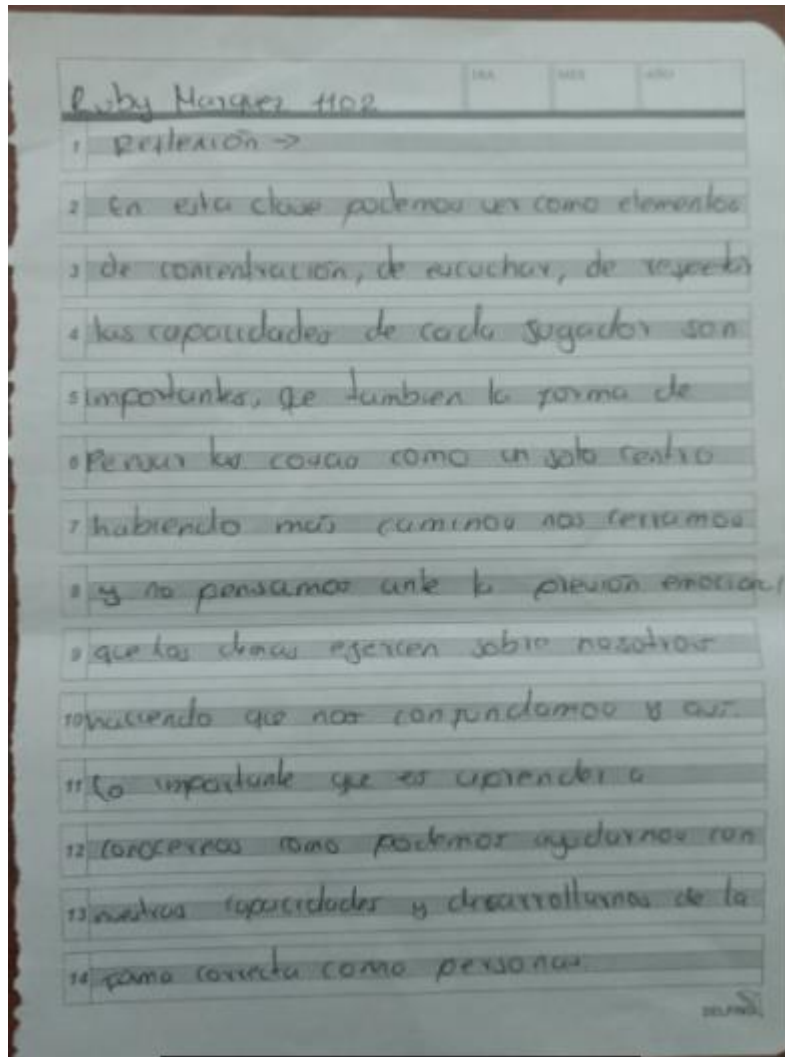 Ruby Marquez 1102
DIA MES AÑO
1 Reflexión →
2 En esta clase podemos ver como elementos
3 de concentración, de escuchar, de respetar
4 las capacidades de cada jugador son
5 importantes, que tambien la forma de
6 Pensar las cosas como un solo centro
7 habiendo más caminos nos cerramos
8 y no pensamos ante la presión emocional
9 que los demas ejercen sobre nosotros
10 haciendo que nos confundamos y
11 lo importante que es aprender a
12 conocernos como podemos ayudarnos con
13 nuestras capacidades y desarrollarnos de la
14 correcta como personas